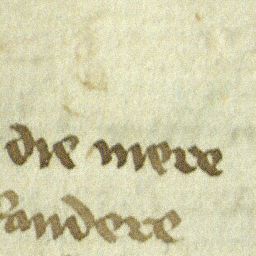 die mere
andere